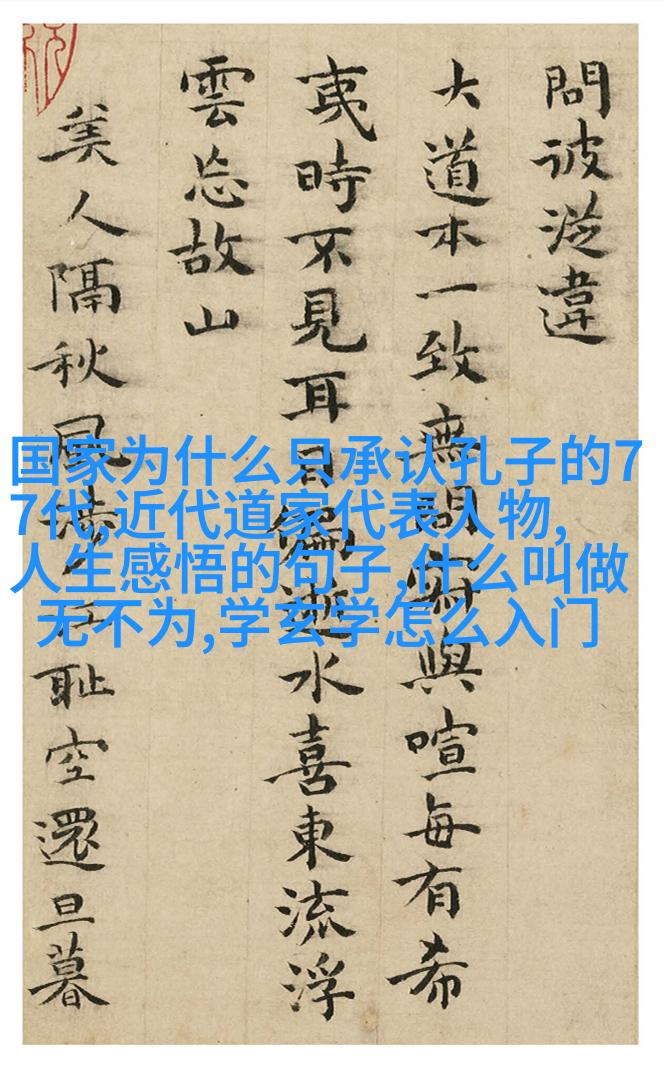 問彼違
大道本一致無與喧每有希
夷時不見耳目逝水喜東流浮
雲忘故山
美人隔秋風耻空還旦暮
国家为什么只承认孔子的7
7代,近代道家代表人物,
人生感悟的句子,什么叫做
无不为,学玄学怎么入门